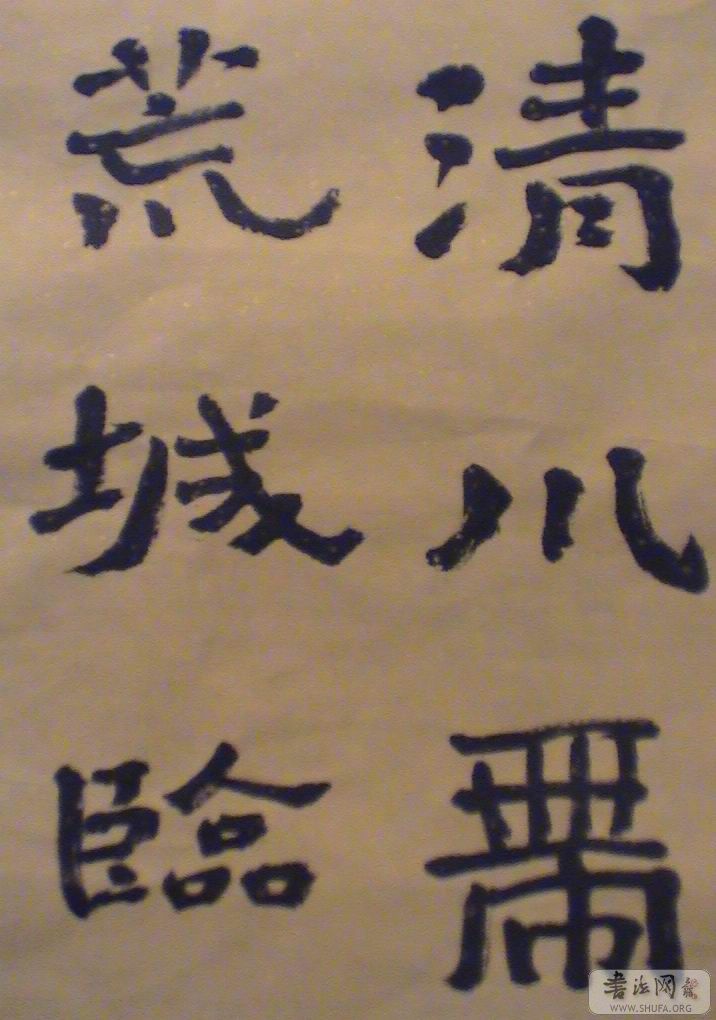 清川帶
荒城臨
書法网
WWW.SHUFA.ORG